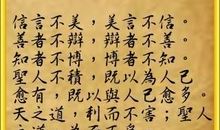 信言不美，美言不信。
善者不辯，辯者不善。
知者不博，博者不知。
聖人不積，既以為人己
愈有，既以與人己愈多。
天之道，利而不害；聖人